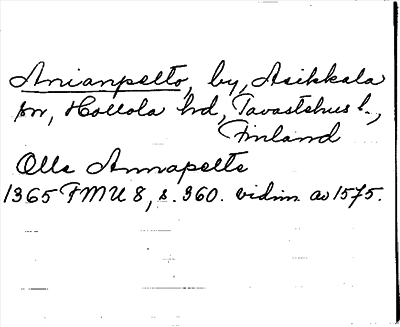 Anianpelto, by, Asikkala
sn, Hollola hd, Tavastehus l.,
Finland
Olle Annapelte
1365 FMU 8, s. 360. vidim. av 1575.